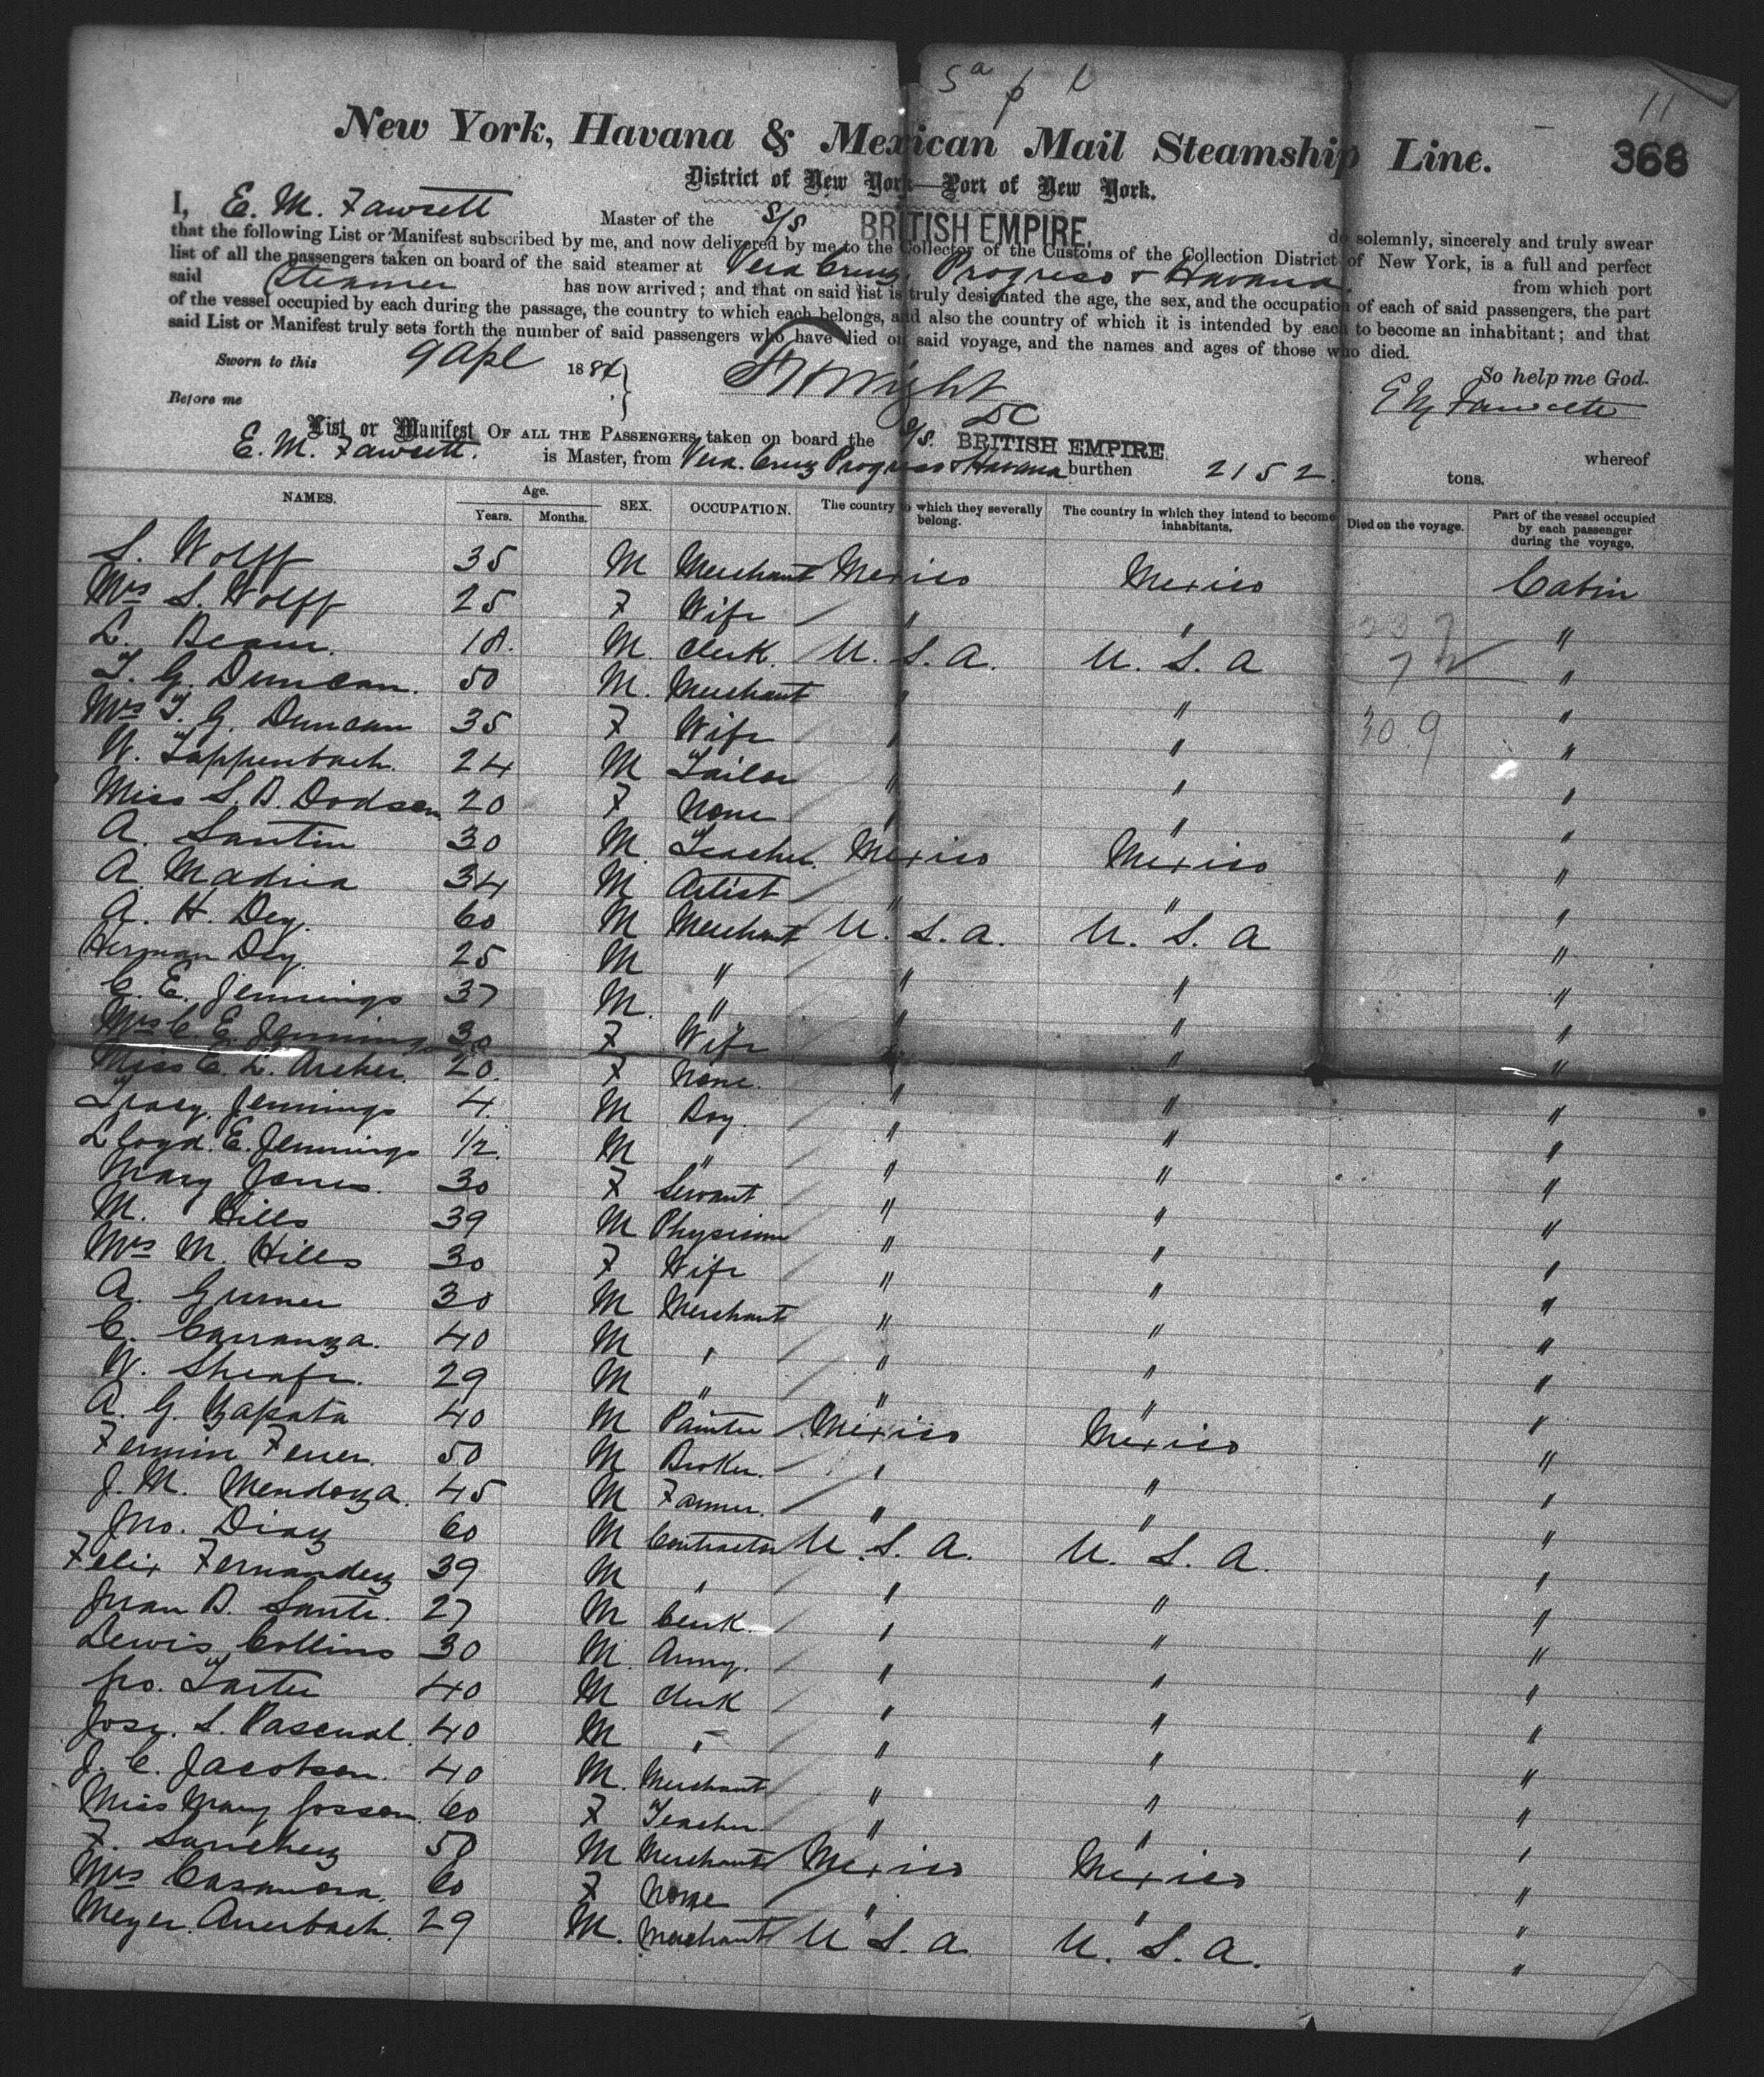 5a p l
11
New York, Havana & Mexican Mail Steamship Line.
368
District of New York—Port of New York.
I, E. M. Fawsett Master of the S/S BRITISH EMPIRE, do solemnly, sincerely and truly swear
that the following List or Manifest subscribed by me, and now delivered by me to the Collector of the Customs of the Collection District of New York, is a full and perfect
list of all the passengers taken on board of the said steamer at Vera Cruz, Progreso & Havana. from which port
said Steamer has now arrived; and that on said list is truly designated the age, the sex, and the occupation of each of said passengers, the part
of the vessel occupied by each during the passage, the country to which each belongs, and also the country of which it is intended by each to become an inhabitant; and that
said List or Manifest truly sets forth the number of said passengers who have died on said voyage, and the names and ages of those who died.
Sworn to this 9 Apl 1884 So help me God.
Before me Wright DC E M Fawsett
List or Manifest OF ALL THE PASSENGERS taken on board the S/S. BRITISH EMPIRE whereof
E. M. Fawsett. is Master, from Vera. Cruz Progreso & Havana burthen 2152. tons.
NAMES. Age. Years. Months. SEX. OCCUPATION. The country to which they severally belong. The country in which they intend to become inhabitants. Died on the voyage. Part of the vessel occupied by each passenger during the voyage.
S. Wolff 35 M Merchant Mexico Mexico Cabin
Mrs S. Wolff 25 F Wife " " "
L. Beam. 18. M. Clerk. U. S. A. U. S. A "
T. G. Duncan. 50 M. Merchant " " "
Mrs T. G. Duncan 35 F Wife " " 30.9 "
W. Tappenbach. 24 M Tailor " " "
Miss S. B. Dodson 20 F None " " "
A. Santin 30 M. Teacher. Mexico Mexico "
A. Madina 34 M Artist " " "
A. H. Dey. 60 M Merchant U. S. A. U. S. A "
Herman Dey. 25 M " " " "
C. E. Jennings 37 M. " " " "
Mrs C. E. Jennings 30 F Wife " " "
Miss E. L. Archer. 20. F None. " " "
Tracy. Jennings 4. M Boy. " " "
Lloyd. E. Jennings 1/2. M " " " "
Mary Jones. 30 F Servant " " "
M. Hills 39 M Physician " " "
Mrs M. Hills 30 F Wife " " "
A. Gruner 30 M Merchant " " "
C. Carranza. 40 M " " " "
W. Sheafe. 29 M " " " "
A. G. Zapata 40 M Painter Mexico Mexico "
Fermin Ferrer. 50 M Broker. " " "
J. M. Mendoza. 45 M Farmer. " " "
Jno. Diaz 60 M Contractor U. S. A. U. S. A. "
Felix Fernandez 39 M " " " "
Juan B. Sante. 27 M Clerk. " " "
Lewis Collins 30 M. Army. " " "
Geo. Tarter 40 M Clerk " " "
Jose. S. Pascual. 40 M " " " "
J. C. Jacobsen. 40 M. Merchant " " "
Miss Mary Josson. 60 F Teacher " " "
F. Sanchez 50 M Merchant Mexico Mexico "
Mrs Casanova. 60 F None " " "
Meyer. Auerbach. 29 M. Merchant U. S. A. U. S. A. "